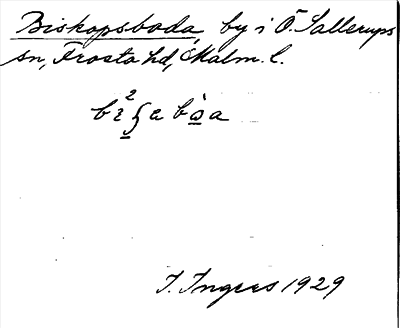 Biskopsboda, by i Ö. Sallerups
sn, Frosta hd, Malm. l.
I. Ingers 1929